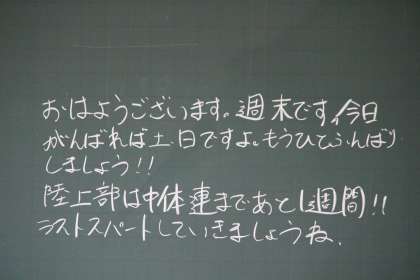 おはようございます。週末です。今日
がんばれば土・日ですよ。もうひとふんばり
しましょう!!
陸上部は中体連まであと1週間!!
ラストスパートしていきましょうね。